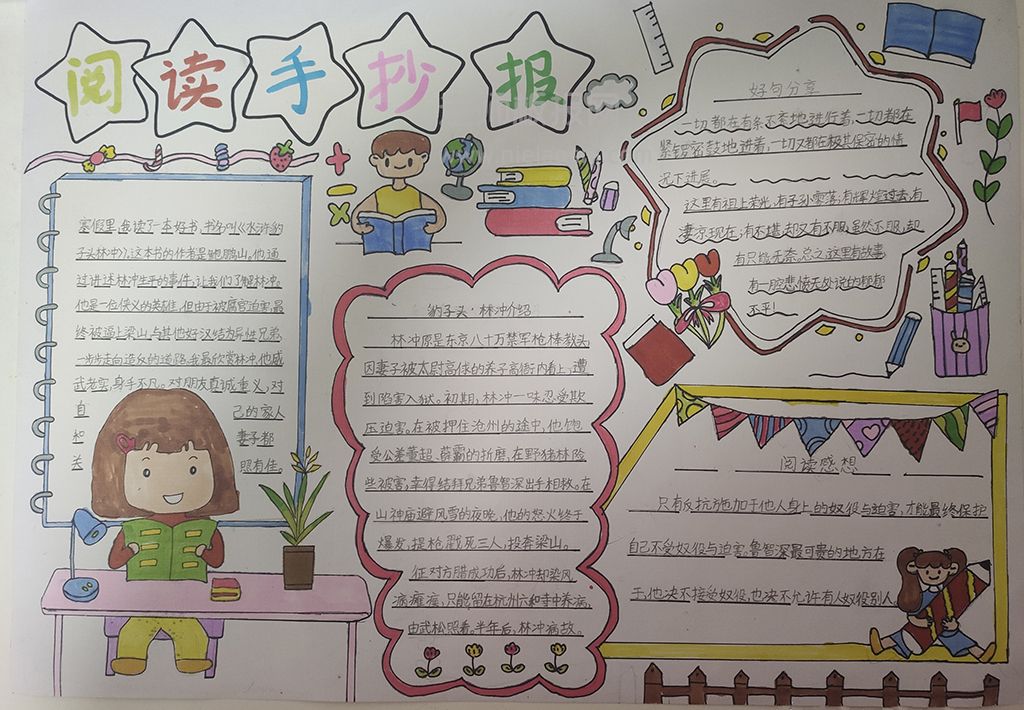 阅读手抄报
寒假里,我读了一本好书,书名叫《水浒豹
子头林冲》,这本书的作者是鲍鹏山。他通
过讲述林冲生平的事件,让我们了解林冲。
他是一位侠义的英雄,但由于被腐官迫害,最
终被逼上梁山,与其他好汉结为异性兄弟,
一步步走向造反的道路。我最欣赏林冲,他威
武老实,身手不凡。对朋友真诚重义,对
自己的家人
和妻子都
关照有佳。
豹子头·林冲介绍
林冲原是东京八十万禁军枪棒教头,
因妻子被太尉高俅的养子高衙内看上,遭
到陷害入狱。初期,林冲一味忍受欺
压迫害。在被押住沧州的途中,他饱
受公差董超、薛霸的折磨,在野猪林险
些被害,幸得结拜兄弟鲁智深出手相救。在
山神庙避风雪的夜晚,他的怒火终于
爆发,提枪戳死三人,投奔梁山。
征对方腊成功后,林冲却染风
病瘫痪,只能留在杭州六和寺中养病,
由武松照看。半年后,林冲病故。
好句分享
一切都在有条不紊地进行着,一切都在
紧锣密鼓地进着,一切又都在极其保密的情
况下进展。
这里有祖上荣光,有子孙零落;有辉煌过去,有
凄凉现在;有不堪,却又有不服,虽然不服,却
有只能无奈。总之,这里有故事,
有一腔悲愤无处说的
不平!
阅读感想
只有反抗施加于他人身上的奴役与迫害,才能最终保护
自己不受奴役与迫害。鲁智深最可贵的地方在
于,他决不接受奴役,也决不允许有人奴役别人。